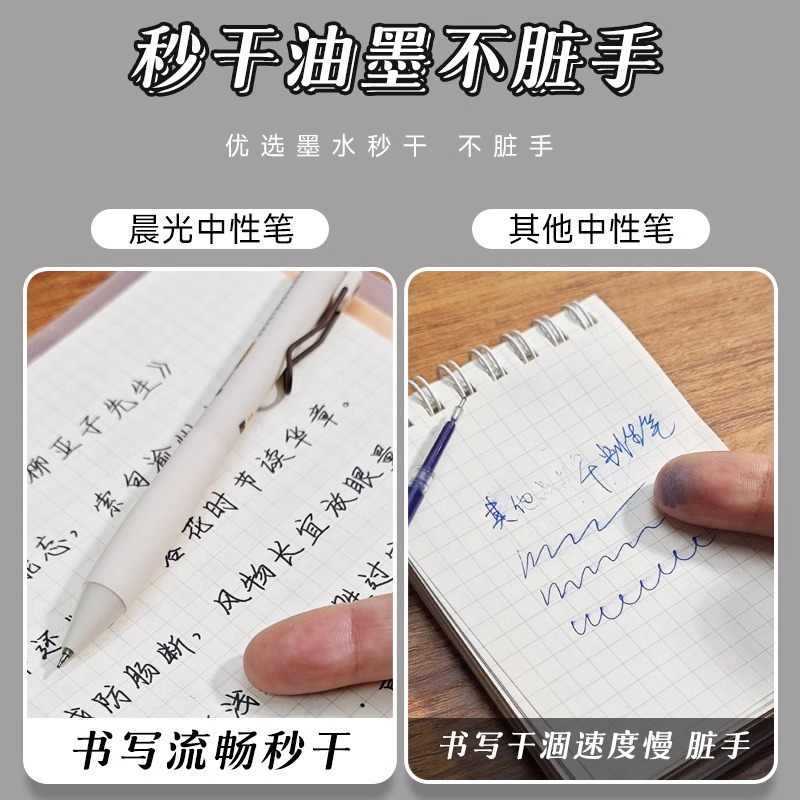 秒干油墨不脏手
优选墨水秒干 不脏手
晨光中性笔
其他中性笔
柳亚子先生》
索句渝州
花时节读华章。
风物长宜放眼量
防肠断,
浅
还
其他
干
书写流畅秒干
书写干涸速度慢 脏手